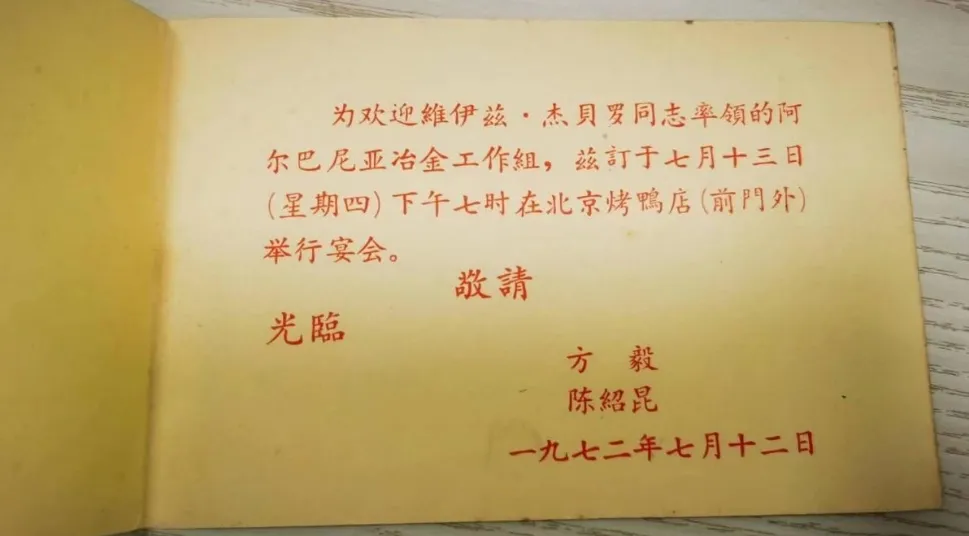 为欢迎維伊兹·杰貝罗同志率領的阿
尔巴尼亚冶金工作組，兹訂于七月十三日
(星期四)下午七时在北京烤鴨店(前門外)
举行宴会。
敬請
光臨
方 毅
陈紹昆
一九七二年七月十二日